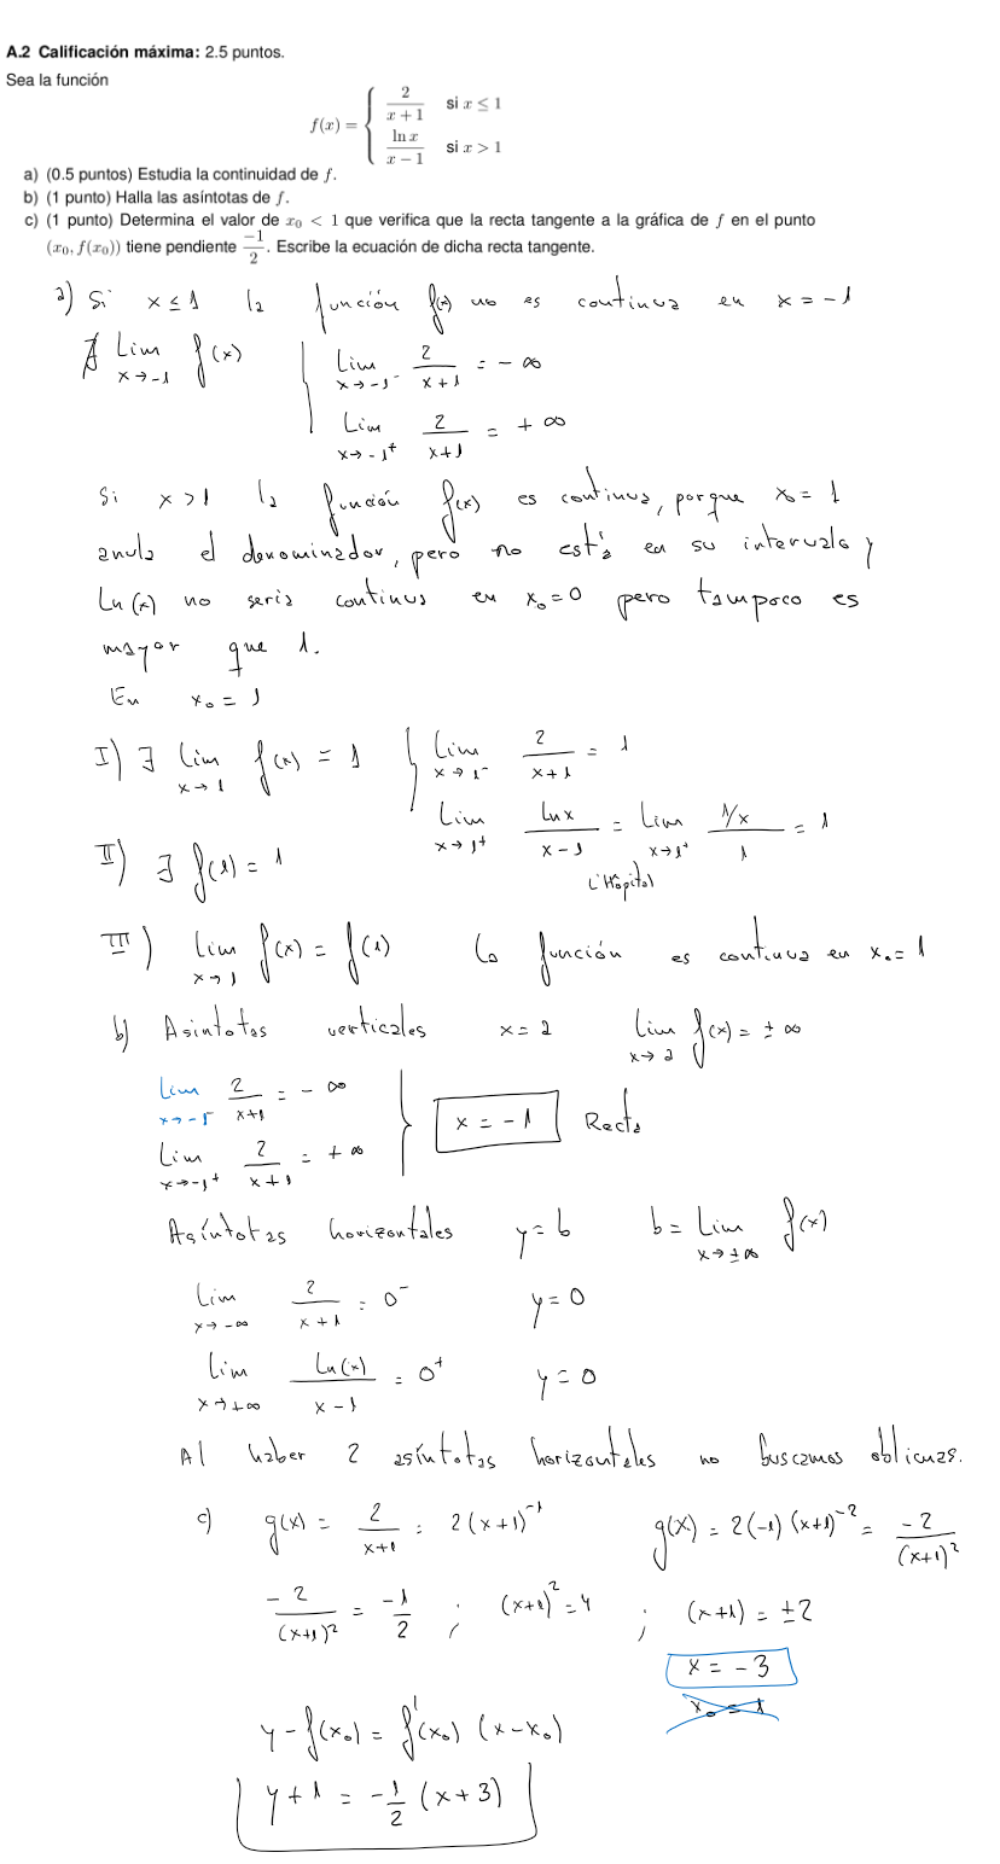 A.2 Calificación máxima: 2.5 puntos.
Sea la función
f(x) = { 2/(x + 1) si x ≤ 1
ln x/(x − 1) si x > 1
a) (0.5 puntos) Estudia la continuidad de f.
b) (1 punto) Halla las asíntotas de f.
c) (1 punto) Determina el valor de x₀ < 1 que verifica que la recta tangente a la gráfica de f en el punto
(x₀, f(x₀)) tiene pendiente −1/2. Escribe la ecuación de dicha recta tangente.
a) Si x ≤ 1 la función f(x) no es continua en x = -1
∄ Lim x→-1 f(x) | Lim x→-1⁻ 2/(x+1) = -∞
Lim x→-1⁺ 2/(x+1) = +∞
Si x > 1 la función f(x) es continua, porque x₀ = 1
anula el denominador, pero no está en su intervalo y
Ln(x) no seria continua en x₀ = 0 pero tampoco es
mayor que 1.
En x₀ = 1
I) ∃ lim x→1 f(x) = 1 { Lim x→1⁻ 2/(x+1) = 1
Lim x→1⁺ Lnx/(x-1) = Lim x→1⁺ (1/x)/1 = 1
L'Hôpital
II) ∃ f(1) = 1
III) lim x→1 f(x) = f(1) La función es continua en x₀ = 1
b) Asintotas verticales x = a Lim x→a f(x) = ±∞
Lim x→-1⁻ 2/(x+1) = -∞
Lim x→-1⁺ 2/(x+1) = +∞ } x = -1 Recta
Asíntotas horizontales y = b b = Lim x→±∞ f(x)
Lim x→-∞ 2/(x+1) = 0⁻ y = 0
Lim x→+∞ Ln(x)/(x-1) = 0⁺ y = 0
Al haber 2 asíntotas horizontales no buscamos oblicuas.
c) g(x) = 2/(x+1) = 2(x+1)⁻¹ g(x) = 2(-1)(x+1)⁻² = -2/(x+1)²
-2/(x+1)² = -1/2 ; (x+1)² = 4 ; (x+1) = ±2
x = -3
x₀ = 1
y - f(x₀) = f'(x₀) (x-x₀)
y + 1 = -1/2 (x+3)